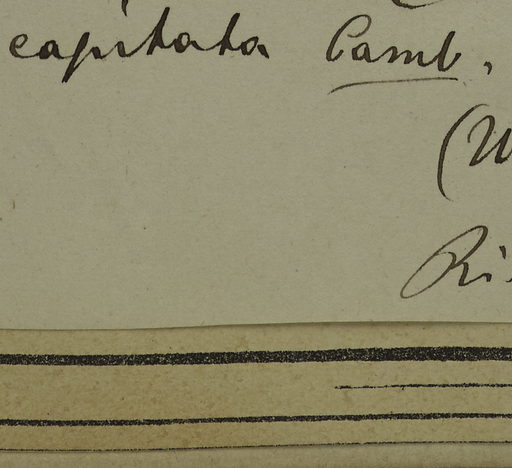 capitata Camb.,